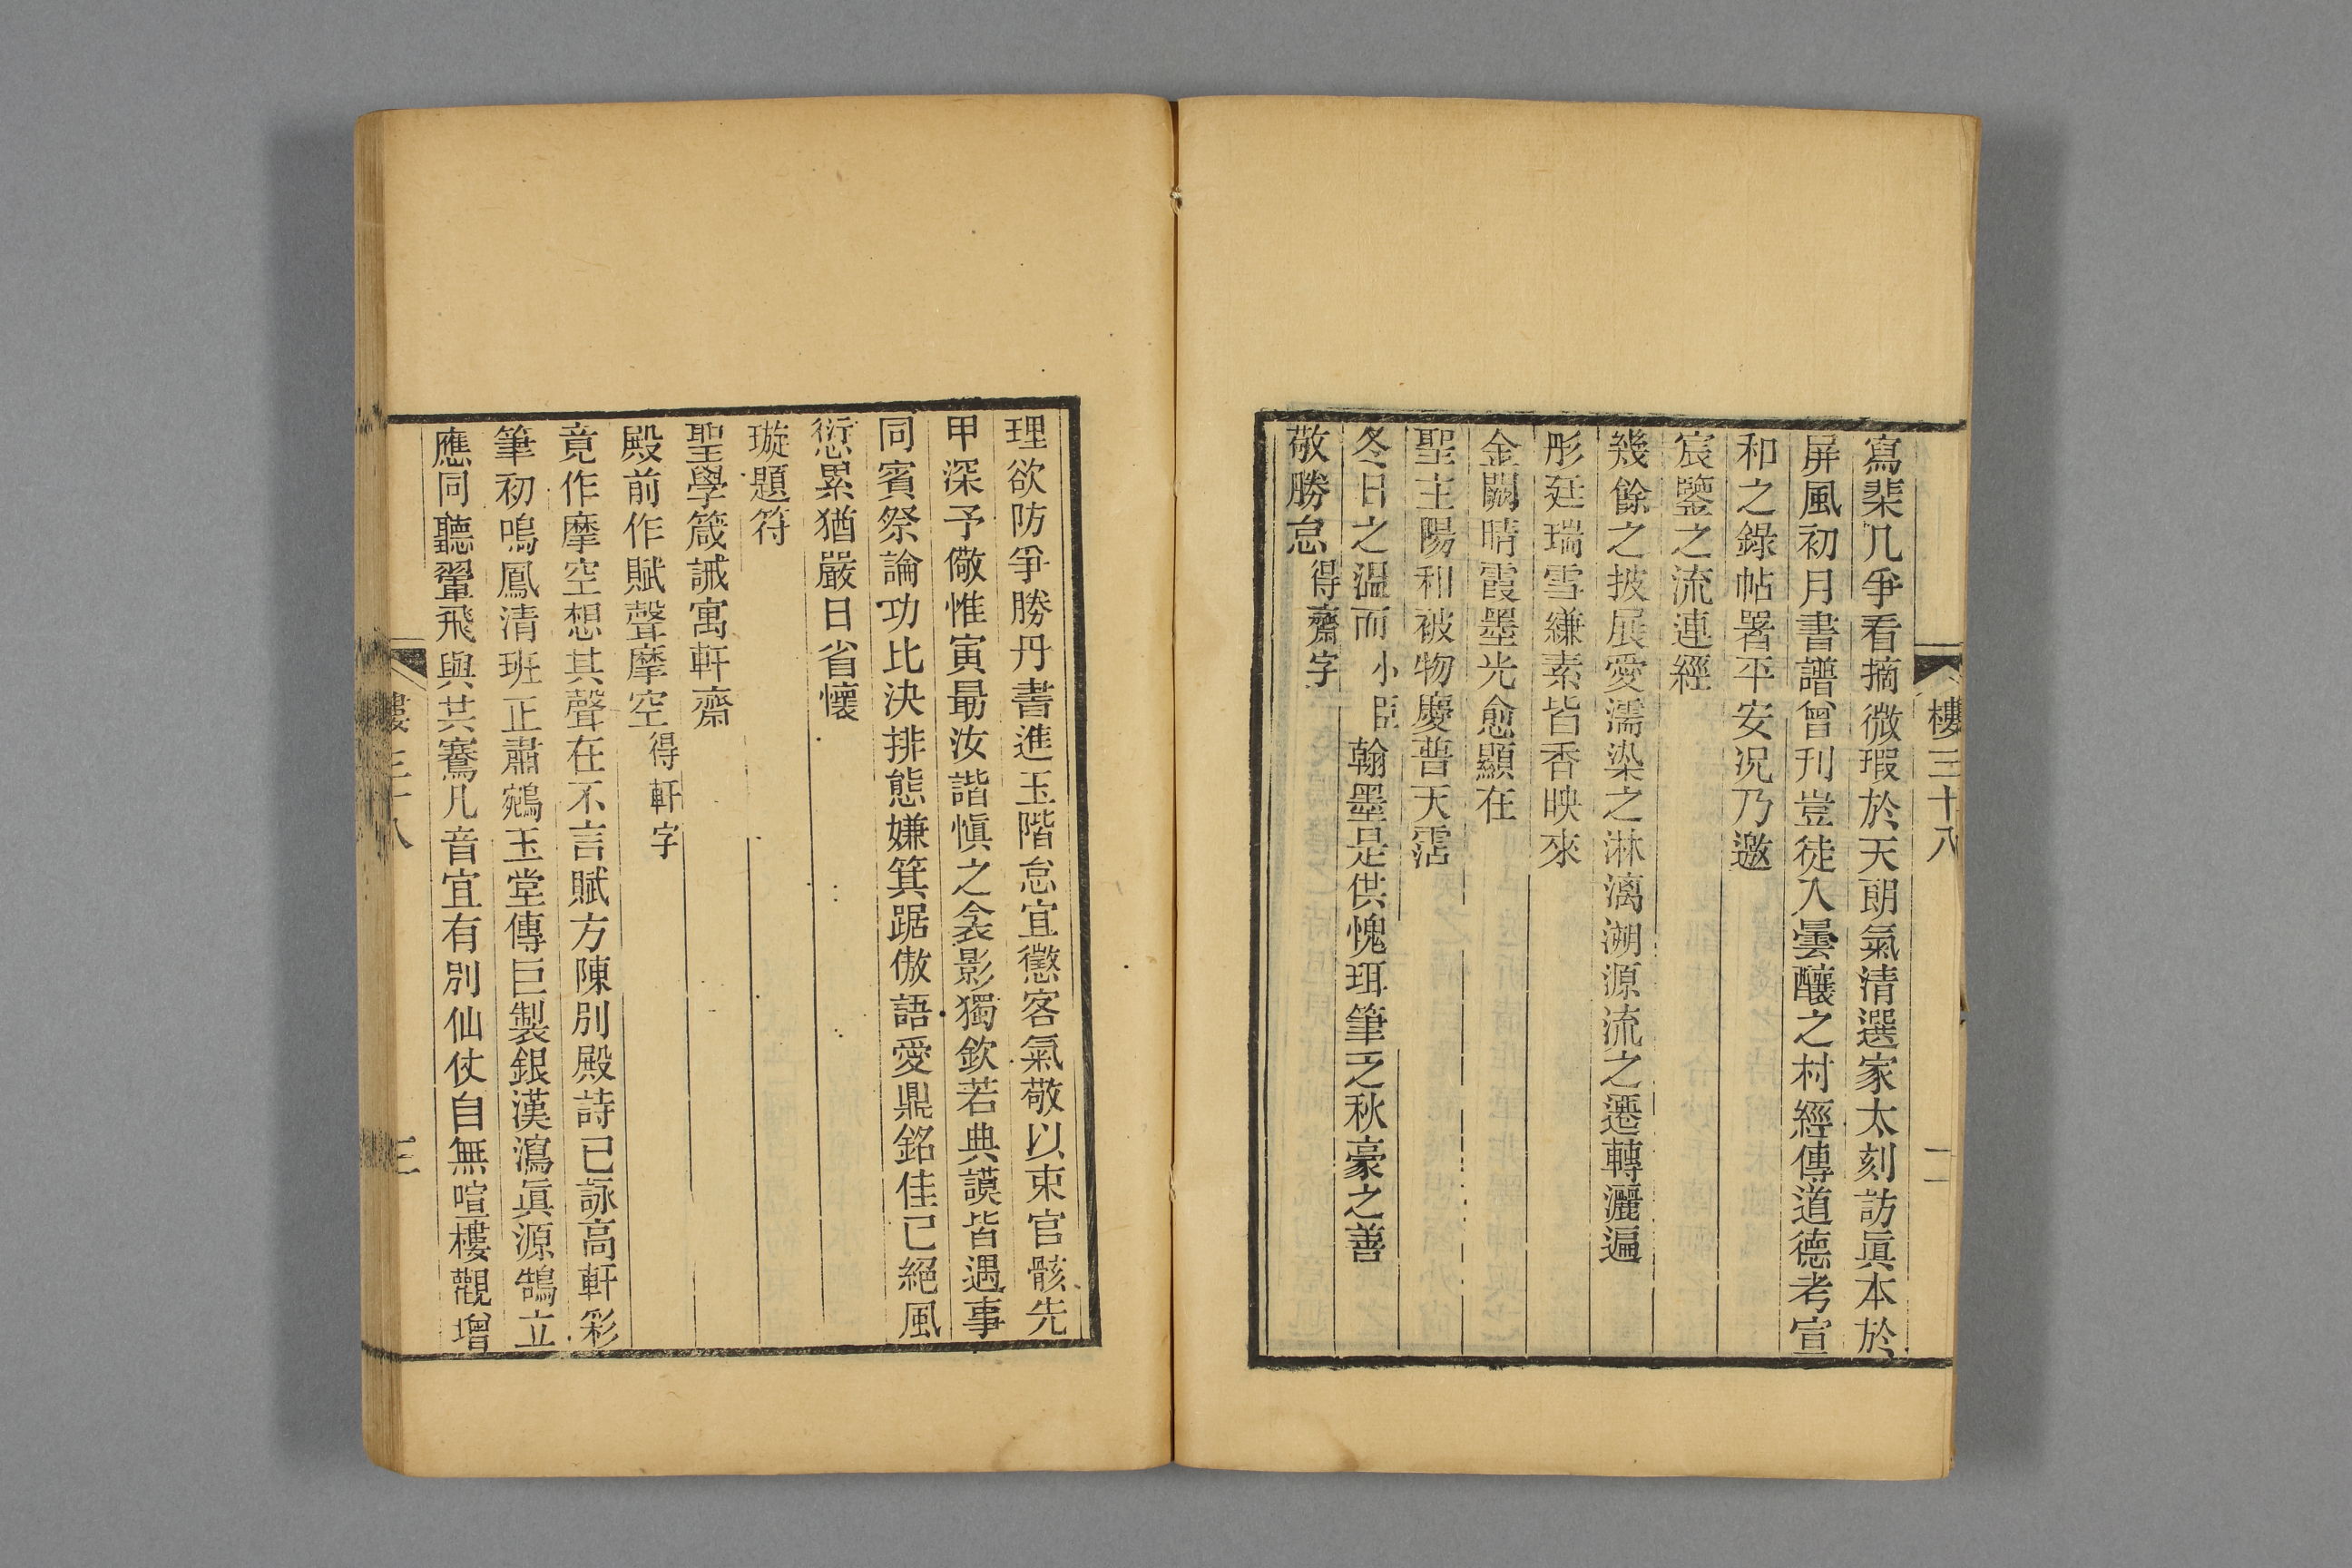 樓三十八
二
寫棐几爭看摘微瑕於天朗氣清選家太刻訪眞本於
屏風初月書譜曾刊豈徒入曇釀之村經傳道德考宣
和之錄帖署平安况乃邀
宸鑒之流連經
幾餘之披展愛濡染之淋漓溯源流之遷轉灑遍
彤廷瑞雪縑素皆香映來
金闕晴霞墨光愈顯在
聖主陽和被物慶普天霑
冬日之溫而小臣翰墨是供愧珥筆乏秋豪之善
敬勝怠得齋字
理欲防爭勝丹書進玉階怠宜懲客氣敬以束官骸先
甲深予儆惟寅最汝諧愼之衾影獨欽若典謨皆遇事
同賓祭論功比決排態嫌箕踞傲語愛鼎銘佳已絕風
愆累猶嚴日省懷
璇題符
聖學箴誡寓軒齋
殿前作賦聲摩空得軒字
竟作摩空想其聲在不言賦方陳別殿詩已詠高軒彩
筆初鳴鳳清班正肅鵷玉堂傳巨製銀漢瀉眞源鵠立
應同聽翬飛與共騫凡音宜有別仙仗自無喧樓觀增
樓三十八
三